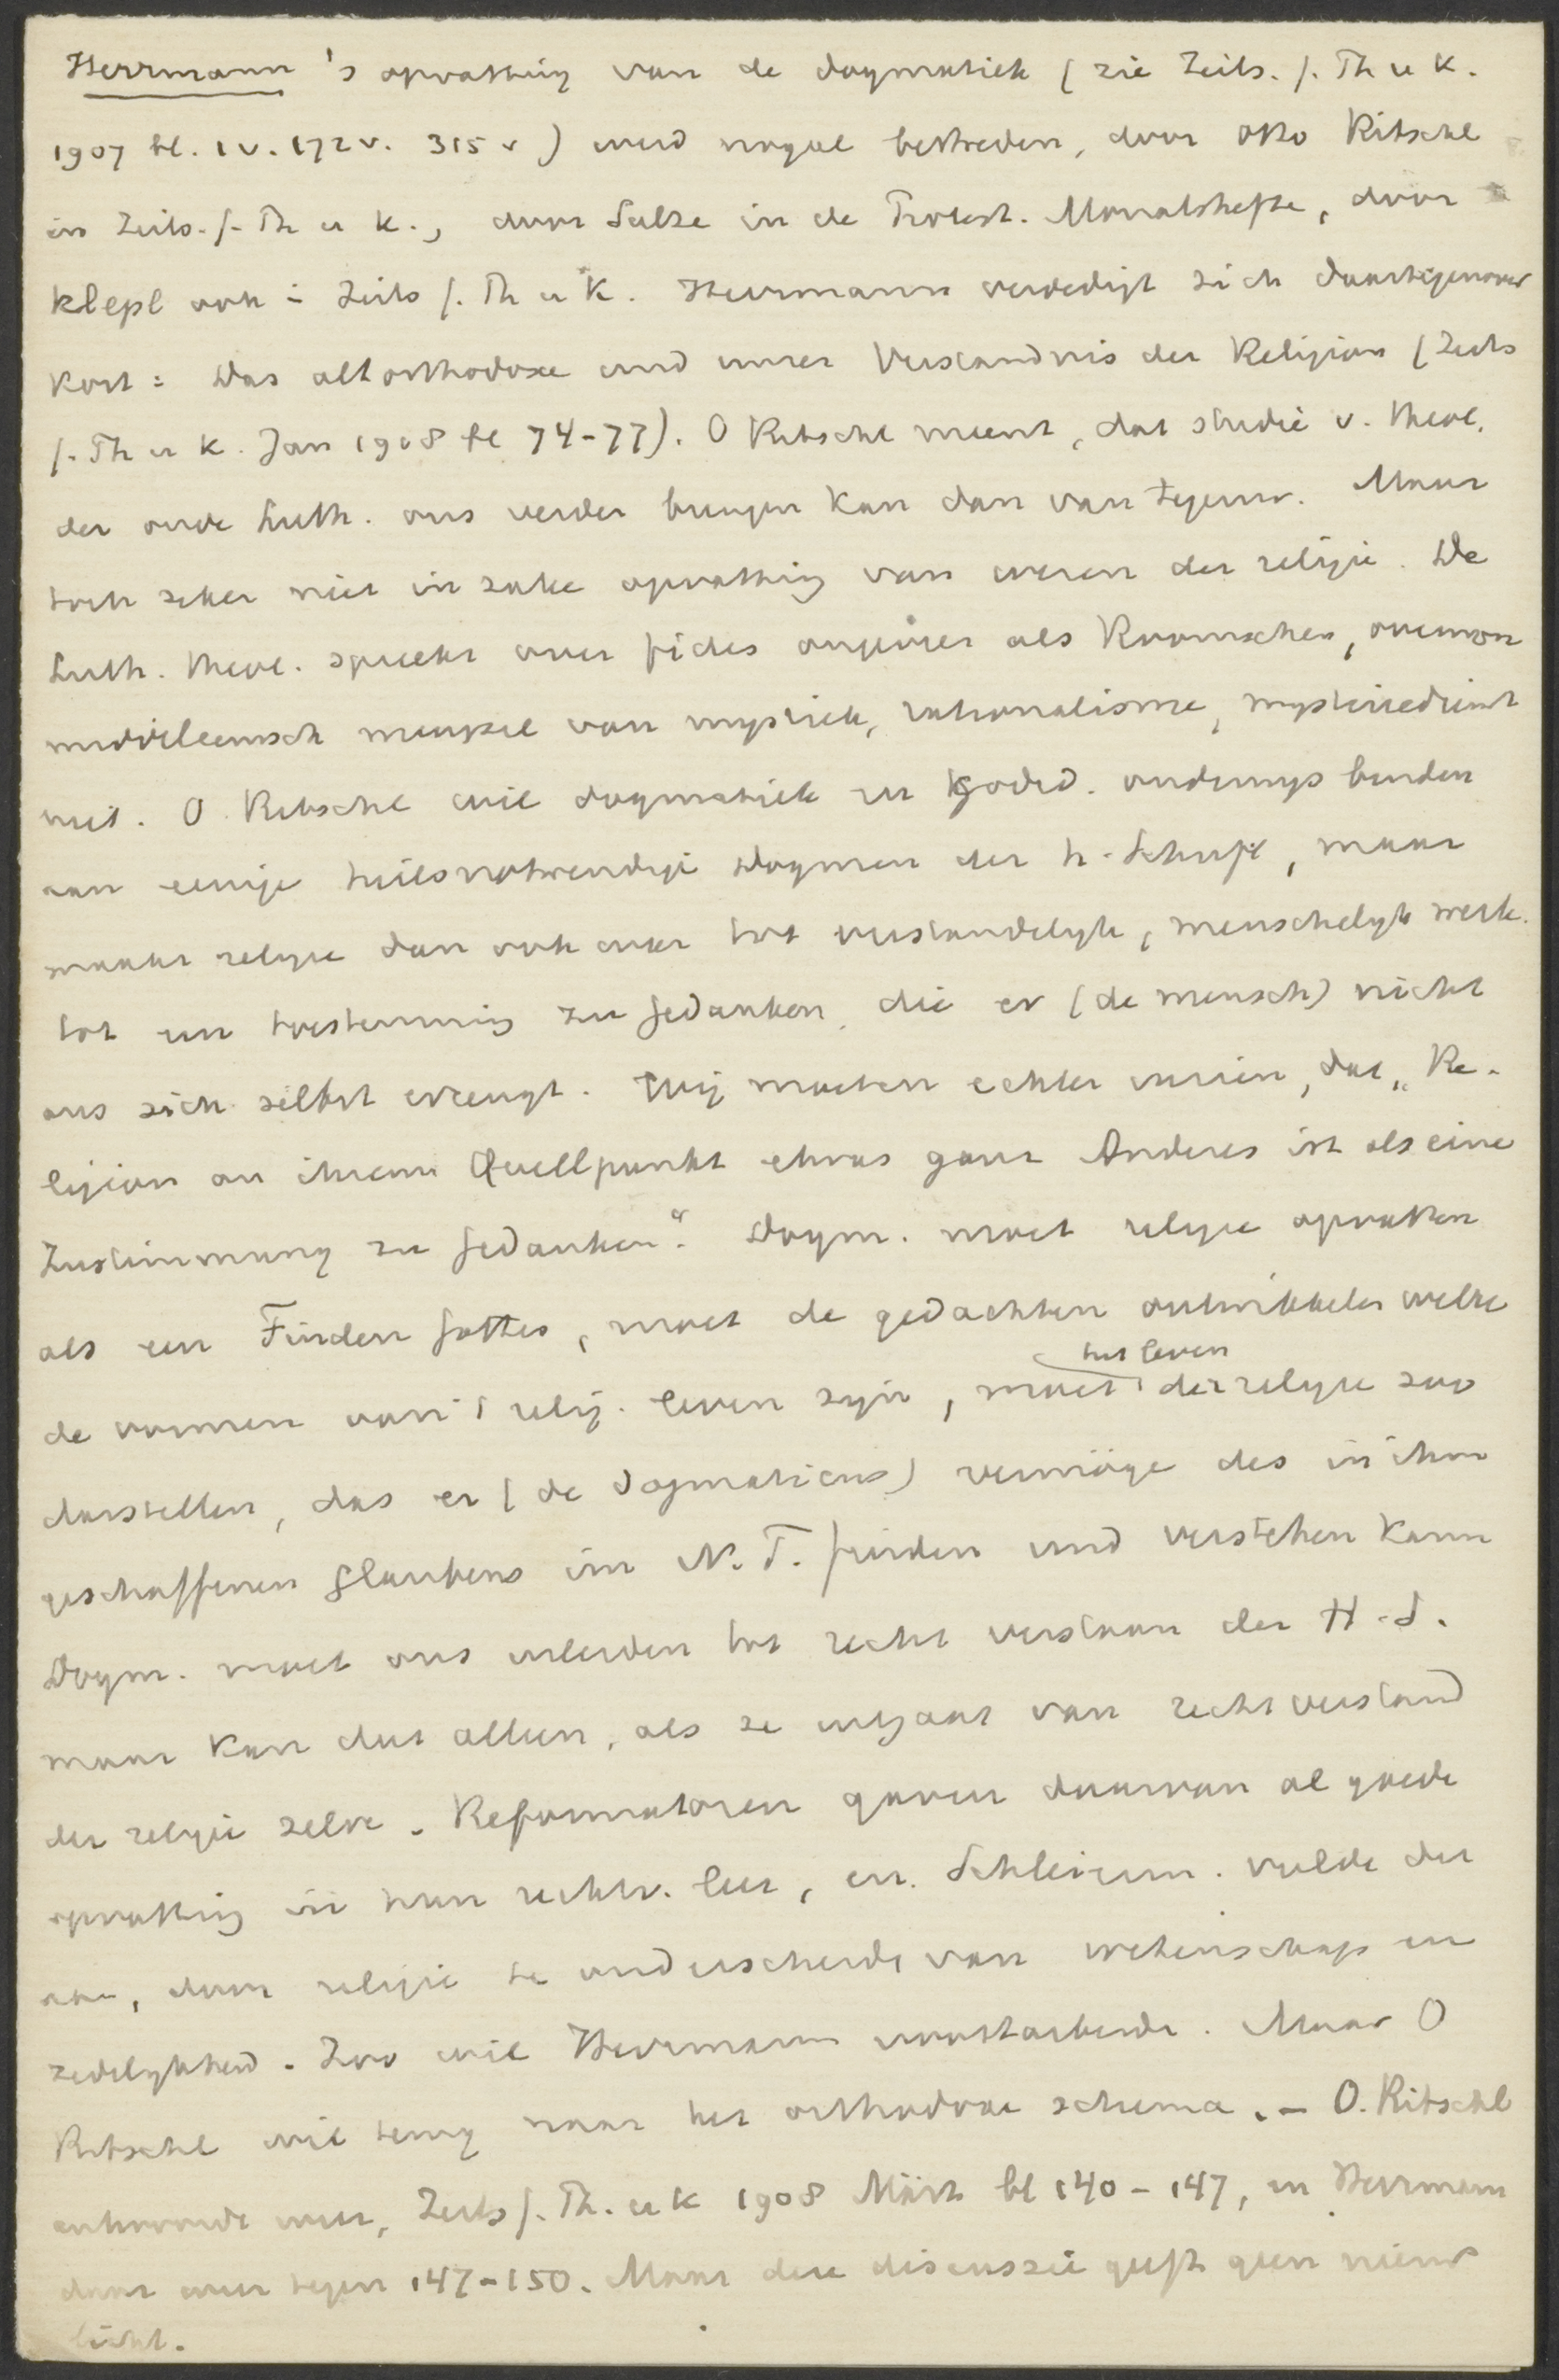 Herrmann's opvatting van de dogmatiek (zie Zeits. f. Th u K.
1907 bl. 1 v. 172 v. 315 v) werd nogal bestreden, door Otto Ritschl
in Zeits. f. Th u K., door Sulze in de Protest. Monatshefte, door
Klepl ook in Zeits f. Th u K. Herrmann verdedigt zich daartegenover
kort: Das altorthodoxe und unser Verständnis der Religion (Zeits
f. Th u K. Jan 1908 bl 74-77). O Ritschl meent, dat studie v. theol.
der oude Luth. ons verder brengen kan dan van tegenw. Maar
toch zeker niet in zake opvatting van wezen der religie. De
Luth. theol. spreekt over fides ongeveer als Roomschen, een
middeleeuwsch mengsel van mystiek, rationalisme, mysteriedienst
uit. O. Ritschl wil dogmatiek en godsd. onderwijs binden
aan eenige heilsnotwendige Dogmen der h. Schrift, maar
maakt religie dan ook weer tot verstandelijk, menschelijk werk.
tot een toestemming zu Gedanken, die er (de mensch) nicht
aus sich selbst erzeugt. Wij moeten echter inzien, dat "Re-
ligion an ihrem Quellpunkt etwas ganz Anderes ist als eine
Zustimmung zu Gedanken". Dogm. moet religie opvatten
als een Finden Gottes, moet de gedachten ontwikkelen welke
de vormen van 't relig. leven zijn, moet het leven der religie zoo
darstellen, das er (de dogmaticus) vermöge des in ihm
geschaffenen Glaubens im N. T. finden und verstehen kann
Dogm. moet ons inleiden tot recht verstaan der H. S.
maar kan dat alleen, als ze uitgaat van recht verstand
der religie zelve. Reformatoren gaven daarvan al goede
opvatting in hun rechtv. leer, en Schleierm. vulde die
aan, door religie te onderscheiden van wetenschap en
zedelijkheid. Zoo wil Herrmann voortarbeiden. Maar O
Ritschl wil terug naar het orthodoxe schema. - O. Ritschl
antwoordde weer, Zeits f. Th. u K 1908 März bl 140-147, en Herrmann
daar weer tegen 147-150. Maar deze discussie geeft geen nieuw
licht.